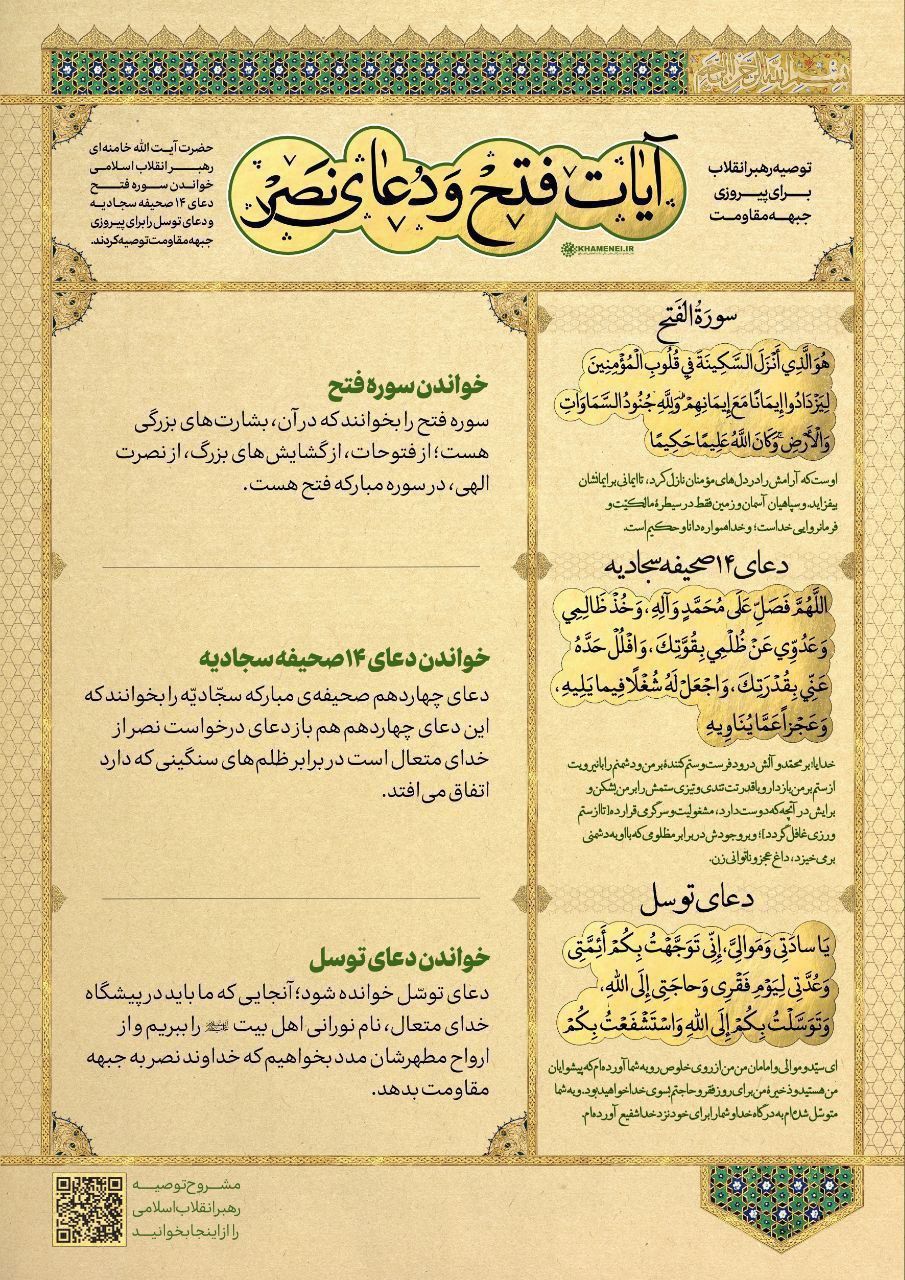 بسم الله الرحمن الرحیم
توصیه رهبر انقلاب
برای پیروزی
جبهه مقاومت
آیات فتح و دُعای نصر
KHAMENEI.IR
حضرت آیت الله خامنه‌ای
رهبر انقلاب اسلامی
خواندن سوره فتح
دعای ۱۴ صحیفه سجادیه
و دعای توسل را برای پیروزی
جبهه مقاومت توصیه کردند.
سورَةُ الفَتح
هُوَ الَّذِي أَنْزَلَ السَّكِينَةَ فِي قُلُوبِ الْمُؤْمِنِينَ
لِيَزْدَادُوا إِيمَانًا مَعَ إِيمَانِهِمْ ۗ وَلِلَّهِ جُنُودُ السَّمَاوَاتِ
وَالْأَرْضِ ۚ وَكَانَ اللَّهُ عَلِيمًا حَكِيمًا
اوست که آرامش را در دل‌های مؤمنان نازل کرد، تا ایمانی بر ایمانشان
بیفزاید. و سپاهیان آسمان و زمین فقط در سیطرهٔ مالکیّت و
فرمانروایی خداست؛ و خدا همواره دانا و حکیم است.
دعای ۱۴ صحیفه سجادیه
اللَّهُمَّ فَصَلِّ عَلَى مُحَمَّدٍ وَآلِهِ، وَخُذْ ظَالِمِي
وَعَدُوِّي عَنْ ظُلْمِي بِقُوَّتِكَ، وَافْلُلْ حَدَّهُ
عَنِّي بِقُدْرَتِكَ، وَاجْعَلْ لَهُ شُغْلًا فِيما يَلِيهِ،
وَعَجْزاً عَمَّا يُنَاوِيهِ
خدایا! بر محمّد و آلش درود فرست و ستم‌کنندهٔ بر من و دشمنم را با نیرویت
از ستم بر من بازدار و با قدرتت تندی و تیزی ستمش را بر من بشکن و
برایش در آنچه که دوست دارد، مشغولیت و سرگرمی قرار ده [تا از ستم
ورزی غافل گردد]؛ و بر وجودش در برابر مظلومی که با او به دشمنی
برمی‌خیزد، داغ عجز و ناتوانی زن.
دعای توسل
يَا سادَتِي وَمَوالِيَّ، إِنِّي تَوَجَّهْتُ بِكُمْ أَئِمَّتِي
وَعُدَّتِي لِيَوْمِ فَقْرِي وَحاجَتِي إِلَى اللهِ،
وَتَوَسَّلْتُ بِكُمْ إِلَى اللهِ وَاسْتَشْفَعْتُ بِكُمْ
ای سیّد و موالی و امامان من من از روی خلوص رو به شما آورده‌ام که پیشوایان
من هستید و ذخیرهٔ من برای روز فقر و حاجتم بسوی خدا خواهید بود. و به شما
متوسّل شده‌ام به درگاه خدا و شما را برای خود نزد خدا شفیع آورده‌ام.
خواندن سوره فتح
سوره فتح را بخوانند که در آن، بشارت‌های بزرگی
هست؛ از فتوحات، از گشایش‌های بزرگ، از نصرت
الهی، در سوره مبارکه فتح هست.
خواندن دعای ۱۴ صحیفه سجادیه
دعای چهاردهم صحیفه‌ی مبارکه سجّادیّه را بخوانند که
این دعای چهاردهم هم باز دعای درخواست نصر از
خدای متعال است در برابر ظلم‌های سنگینی که دارد
اتفاق می‌افتد.
خواندن دعای توسل
دعای توسّل خوانده شود؛ آنجایی که ما باید در پیشگاه
خدای متعال، نام نورانی اهل بیت را ببریم و از
ارواح مطهرشان مدد بخواهیم که خداوند نصر به جبهه
مقاومت بدهد.
مشروح توصیه
رهبر انقلاب اسلامی
را از اینجا بخوانید